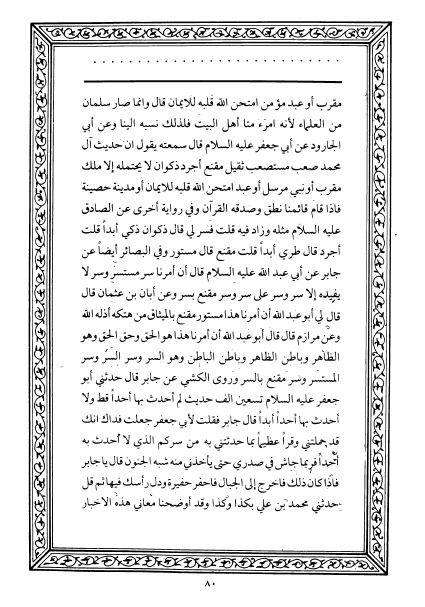 مقرب أو عبد مؤمن امتحن الله قلبه للايمان قال وانما صار سلمان
من العلماء لأنه امرء منا أهل البيت فلذلك نسبه الينا وعن أبي
الجارود عن أبي جعفر عليه السلام قال سمعته يقول ان حديث آل
محمد صعب مستصعب ثقيل مقنع أجرد ذكوان لا يحتمله إلا ملك
مقرب أو نبي مرسل أو عبد امتحن الله قلبه للايمان أو مدينة حصينة
فاذا قام قائمنا نطق وصدقه القرآن وفي رواية أخرى عن الصادق
عليه السلام مثله وزاد فيه قلت فسر لي قال ذكوان ذكي أبداً قلت
أجرد قال طري أبداً قلت مقنع قال مستور وفي البصائر أيضاً عن
جابر عن أبي عبد الله عليه السلام قال أن أمرنا سر مستسر وسر لا
يفيده إلا سر وسر على سر وسر مقنع بسر وعن أبان بن عثمان قال
قال لي أبو عبد الله أن أمرنا هذا مستور مقنع بالميثاق من هتكه أذله الله
وعن مرازم قال قال أبو عبد الله أن أمرنا هذا هو الحق وحق الحق وهو
الظاهر وباطن الظاهر وباطن الباطن وهو السر وسر السر وسر
المستسر وسر مقنع بالسر وروى الكشي عن جابر قال حدثني أبو
جعفر عليه السلام تسعين الف حديث لم أحدث بها أحداً قط ولا
أحدث بها أحداً أبداً قال جابر فقلت لأبي جعفر جعلت فداك انك
قد حملتني وقراً عظيماً بما حدثتني به من سركم الذي لا أحدث به
أحداً فربما جاش في صدري حتى يأخذني منه شبه الجنون قال يا جابر
فاذا كان ذلك فاخرج إلى الجبال فاحفر حفيرة ودل رأسك فيها ثم قل
حدثني محمد بن علي بكذا وكذا وقد أوضحنا معاني هذه الاخبار
٨٠